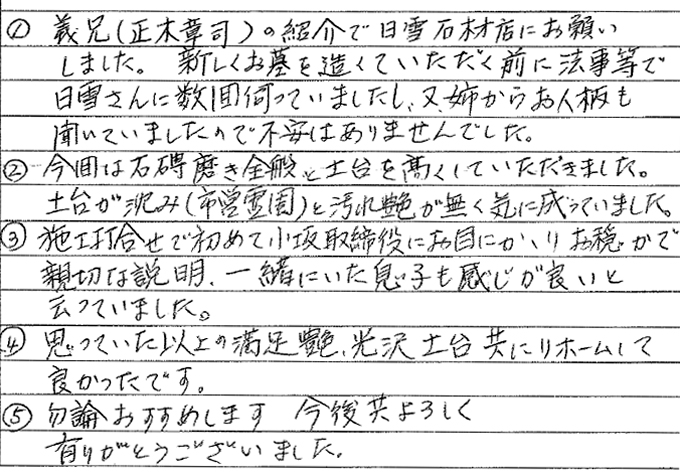 ① 義兄(正木章司)の紹介で日雪石材店にお願い
しました。 新しくお墓を造っていただく前に法事等で
日雪さんに数回伺っていましたし、又、姉からお人柄も
聞いていましたので不安はありませんでした。
② 今回は石碍磨き全般と土台を高くしていただきました。
土台が沈み(市営霊園)と汚れ艶が無く気に成っていました。
③ 施工打合せで初めて小坂取締役にお目にかゝりお穏やかで
親切な説明、一緒にいた息子も感じが良いと
云っていました。
④ 思っていた以上の満足艶、光沢 土台 共にリホームして
良かったです。
⑤ 勿論おすすめします 今後共よろしく
有りがとうございました。